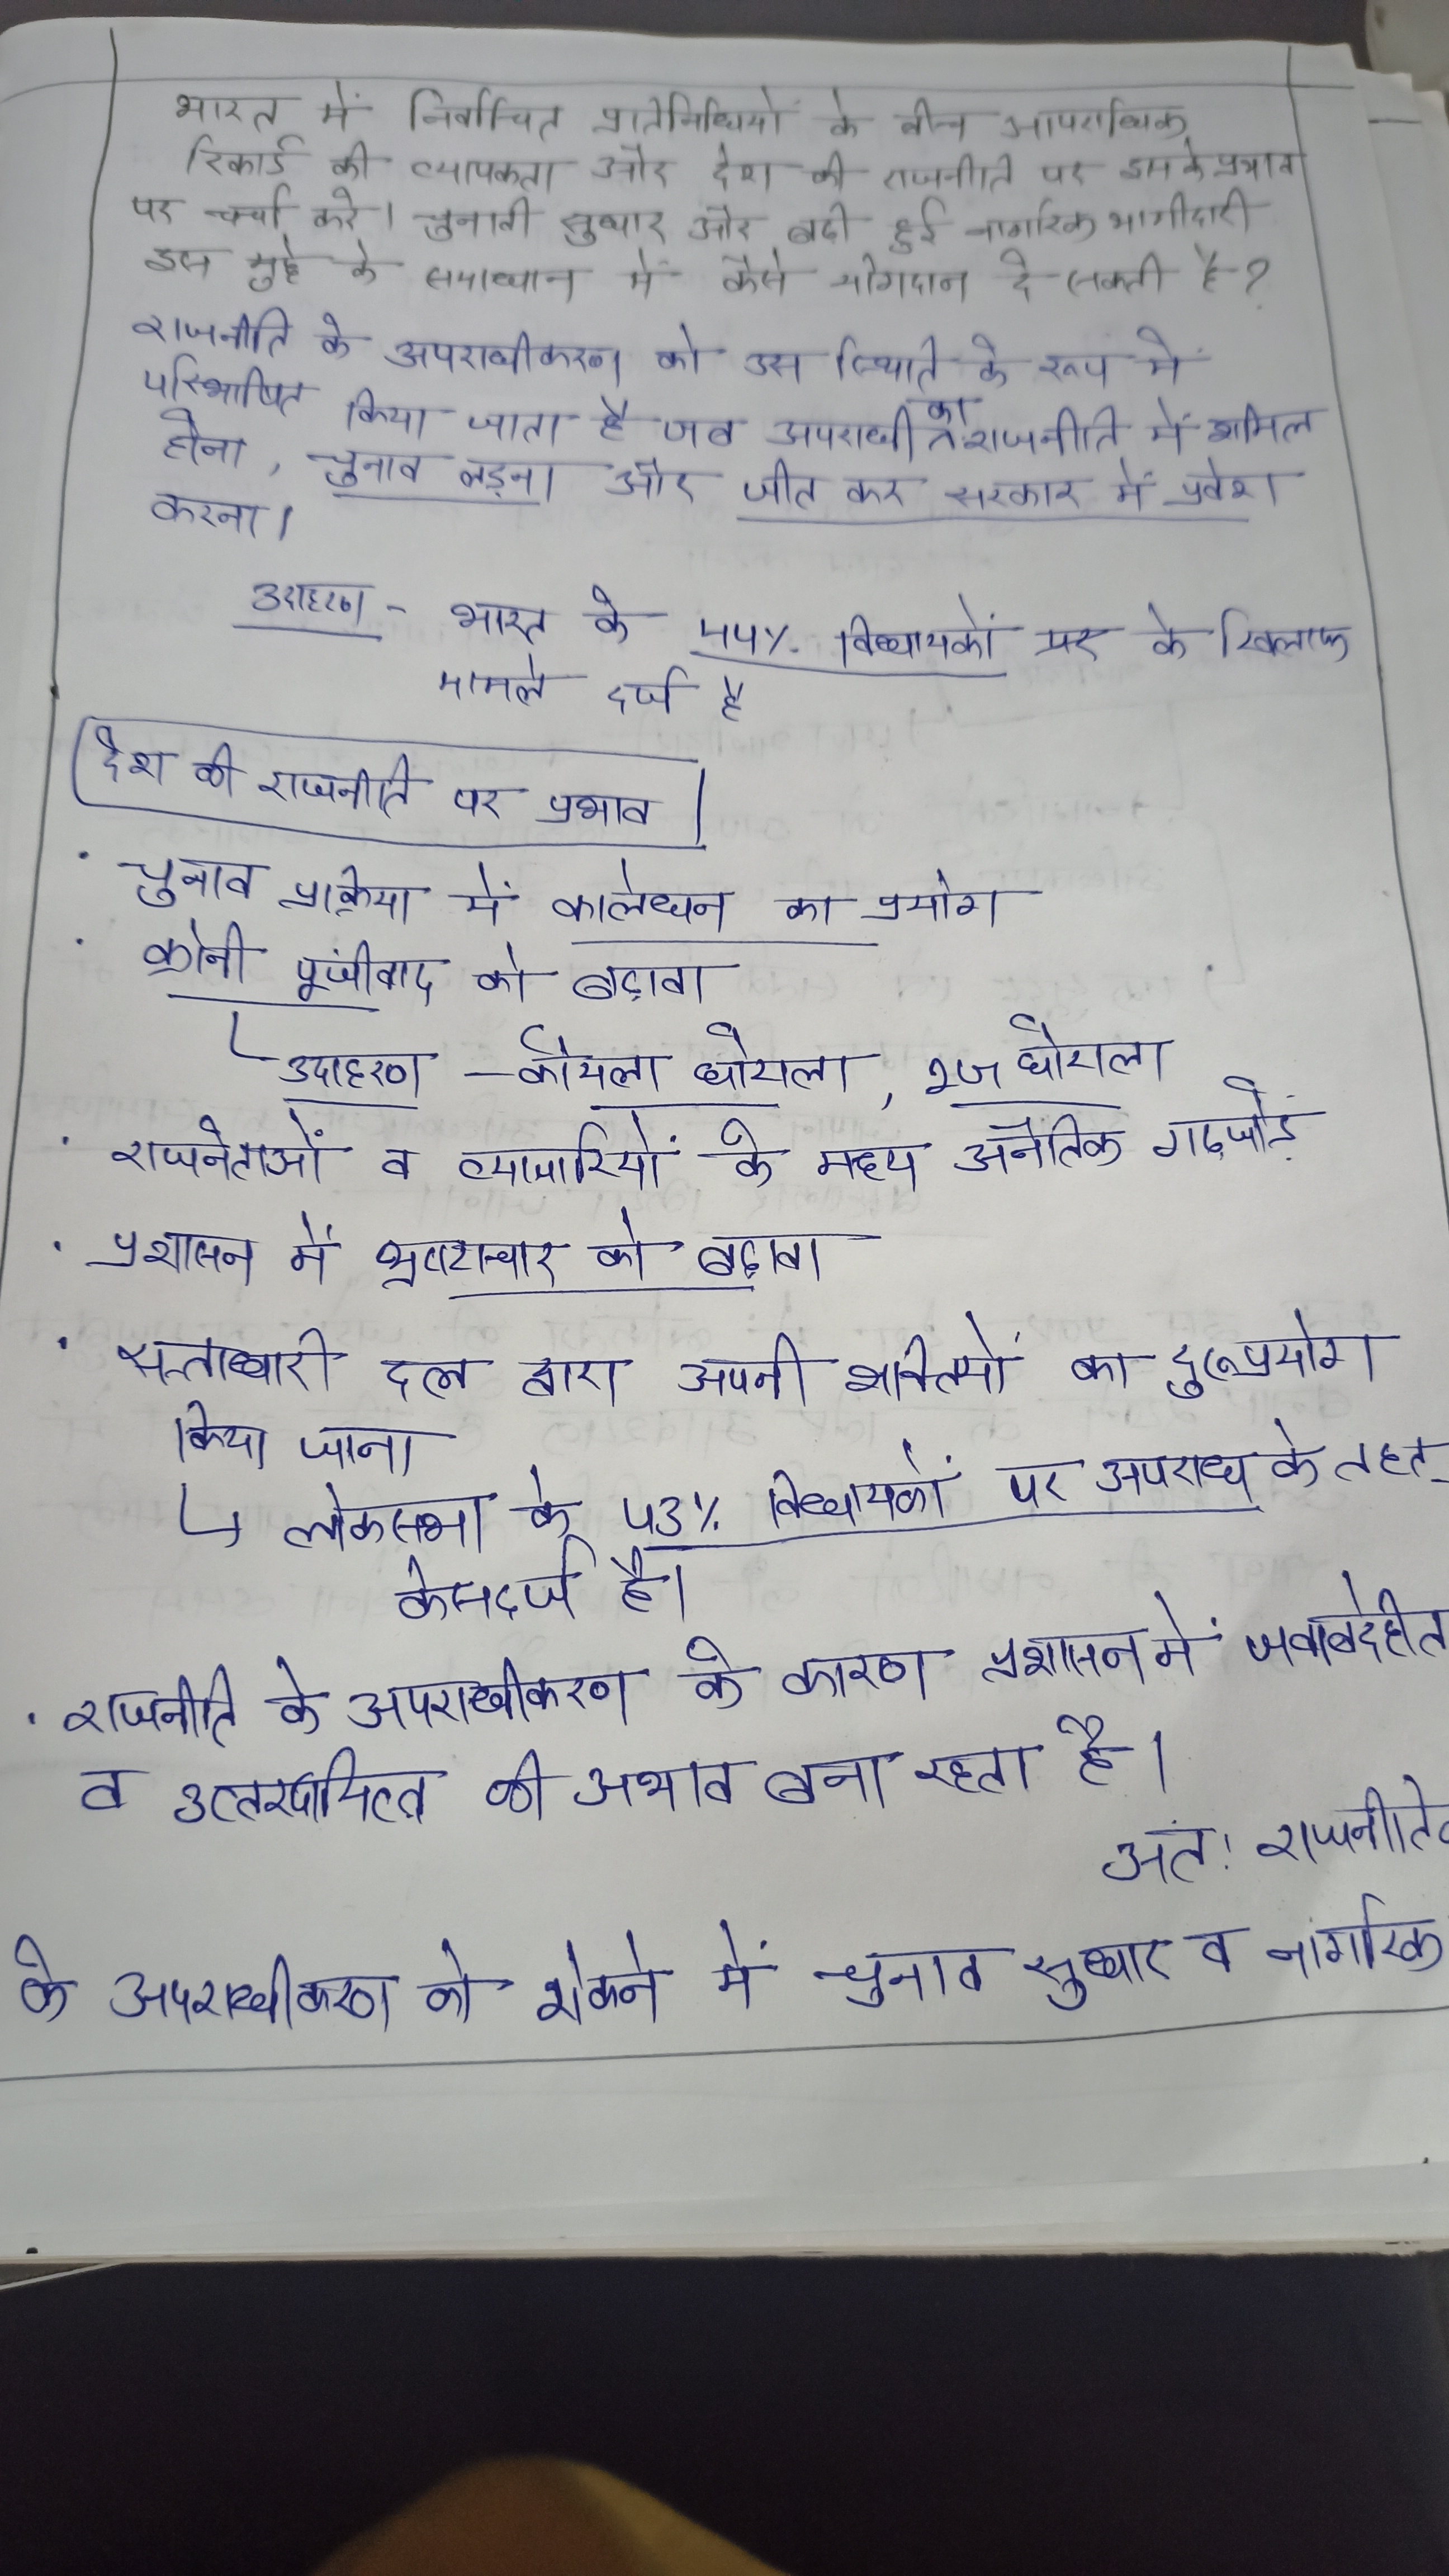 भारत में निर्वाचित प्रतिनिधियों के बीच आपराधिक
रिकार्ड की व्यापकता और देश की राजनीति पर इसके प्रभाव
पर चर्चा करे। चुनावी सुधार और बढी हुई नागरिक भागीदारी
इस मुद्दे के समाधान में कैसे योगदान दे सकती है?
राजनीति के अपराधीकरण को उस स्थिति के रूप में
परिभाषित किया जाता है जब अपराधी का राजनीति में शामिल
होना, चुनाव लड़ना और जीत कर सरकार में प्रवेश
करना।
उदाहरण - भारत के 44% विधायकों के खिलाफ
मामले दर्ज है
देश की राजनीति पर प्रभाव
• चुनाव प्रक्रिया में कालेधन का प्रयोग
• क्रोनी पूंजीवाद को बढ़ावा
उदाहरण - कोयला घोटाला, 2G घोटाला
• राजनेताओं व व्यापारियों के मध्य अनैतिक गठजोड़
• प्रशासन में भ्रष्टाचार को बढ़ावा
• सत्ताधारी दल द्वारा अपनी शक्तियों का दुरूप्रयोग
किया जाना
↳ लोकसभा के 43% विधायकों पर अपराध के तहत
केस दर्ज है।
• राजनीति के अपराधीकरण के कारण प्रशासन में जवाबदेहीत
व उत्तरदायित्व की अभाव बना रहता है।
अतः राजनीति
के अपराधीकरण को रोकने में चुनाव सुधार व नागरिक